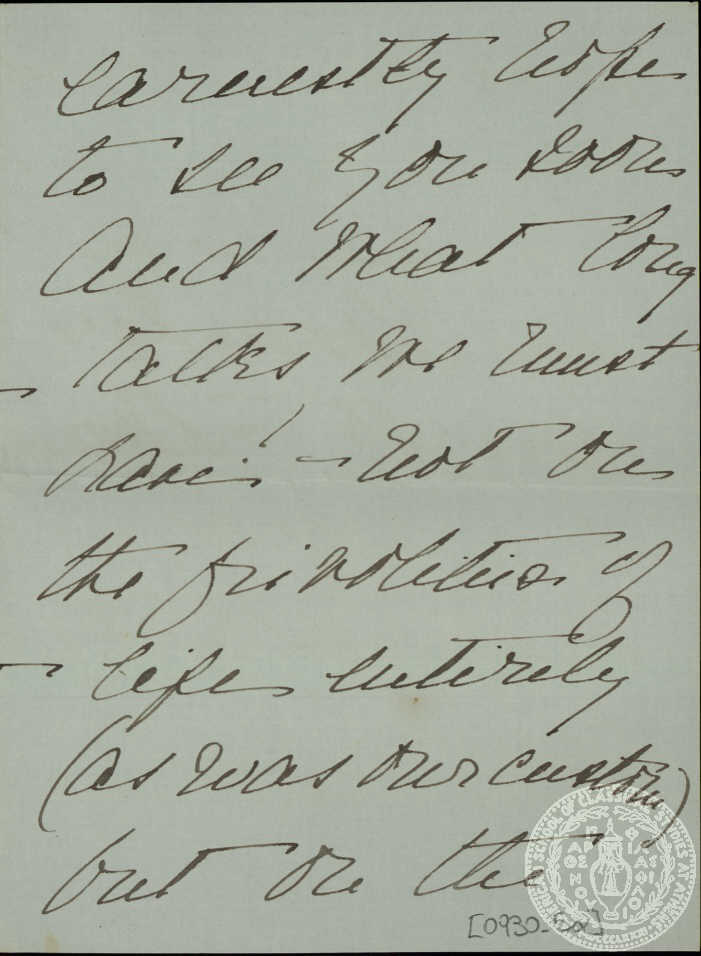 earnestly hope
to see you soon
And what long
talks we must
have! – not on
the frivolities of
life entirely
(as was our custom)
but on the
[0930